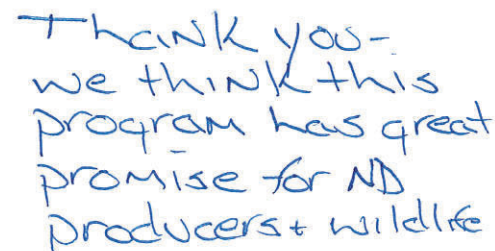 Thank you-
we think this
program has great
promise for ND
producers + wildlife